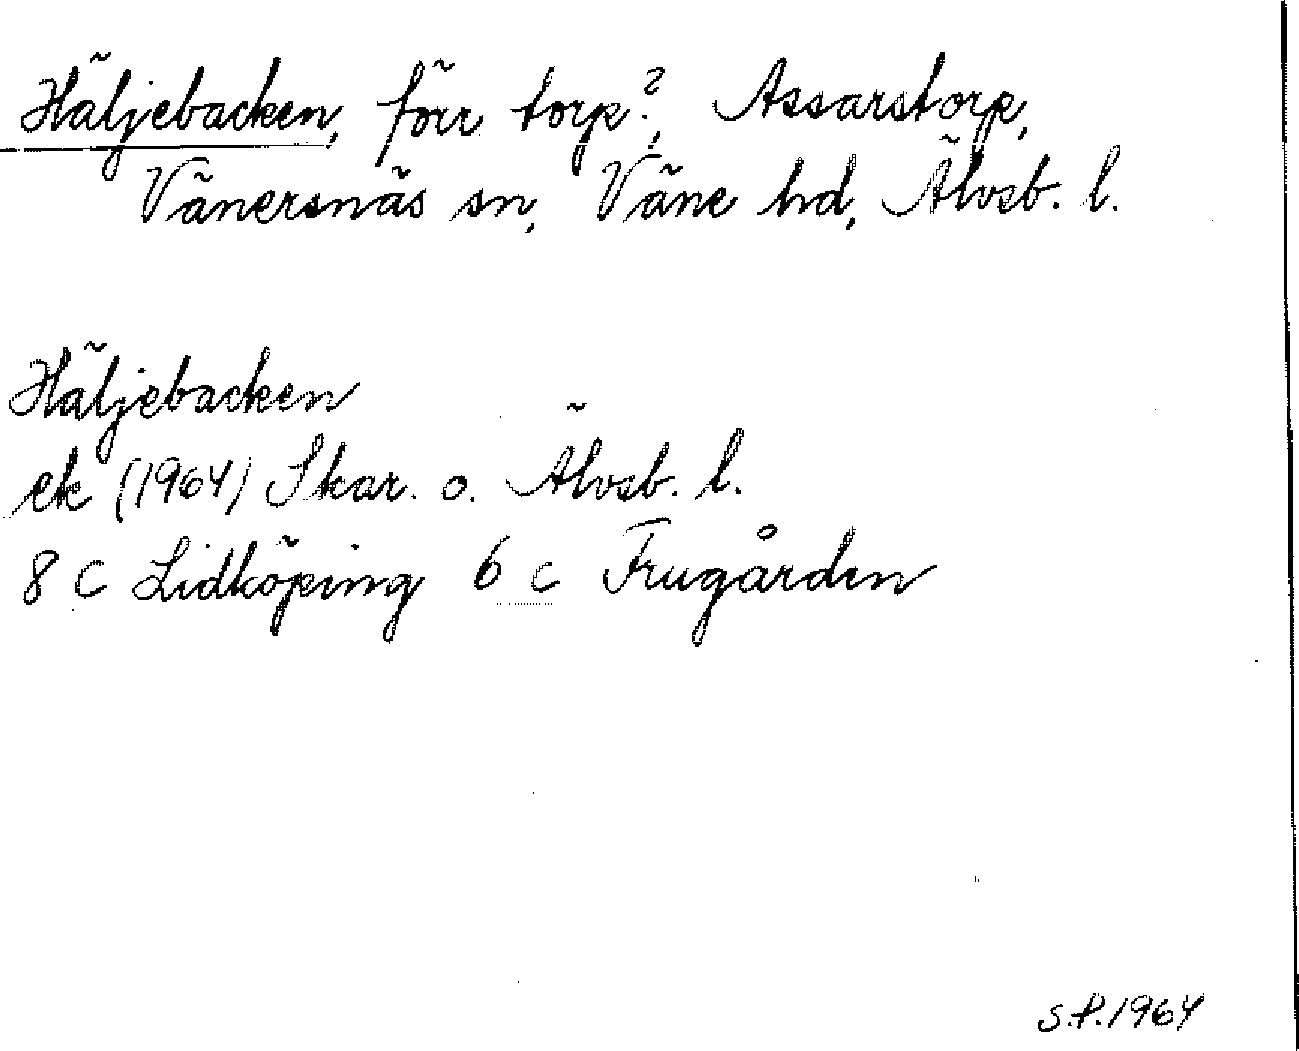 Häljebacken, förr torp?, Assarstorp,
Vänersnäs sn, Väne hd, Älvsb. l.
Häljebacken
ek (1964) Skar. o. Älvsb. l.
8 C Lidköping 6 c Frugården
S.P. 1964